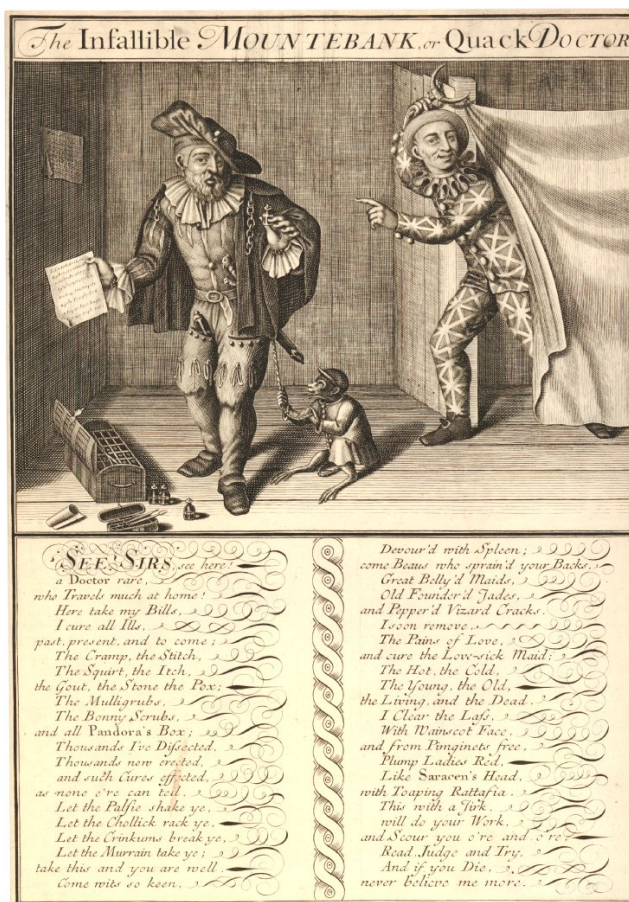 The Infallible MOUNTEBANK, or Quack DOCTOR
SEE SIRS, see here!
a Doctor rare,
who Travels much at home!
Here take my Bills,
I cure all Ills,
past, present, and to come;
The Cramp, the Stitch,
The Squirt, the Itch,
the Gout, the Stone the Pox;
The Mulligrubs,
The Bonny Scrubs,
and all Pandora's Box;
Thousands I've Dissected,
Thousands new erected,
and such Cures effected,
as none e're can tell.
Let the Palsie shake ye,
Let the Chollick rack ye,
Let the Crinkums break ye,
Let the Murrain take ye;
take this and you are well.
Come wits so keen,
Devour'd with Spleen;
come Beaus who sprain'd your Backs,
Great Belly'd Maids,
Old Founder'd Jades,
and Pepper'd Vizard Cracks.
I soon remove
The Pains of Love,
and cure the Love-sick Maid;
The Hot, the Cold,
The Young, the Old,
the Living, and the Dead.
I Clear the Lass,
With Wainscot Face,
and from Pimginets free,
Plump Ladies Red,
Like Saracen's Head,
with Toaping Rattafia.
This with a Jirk,
will do your Work,
and Scour you o're and o're
Read, Judge and Try,
And if you Die,
never believe me more.